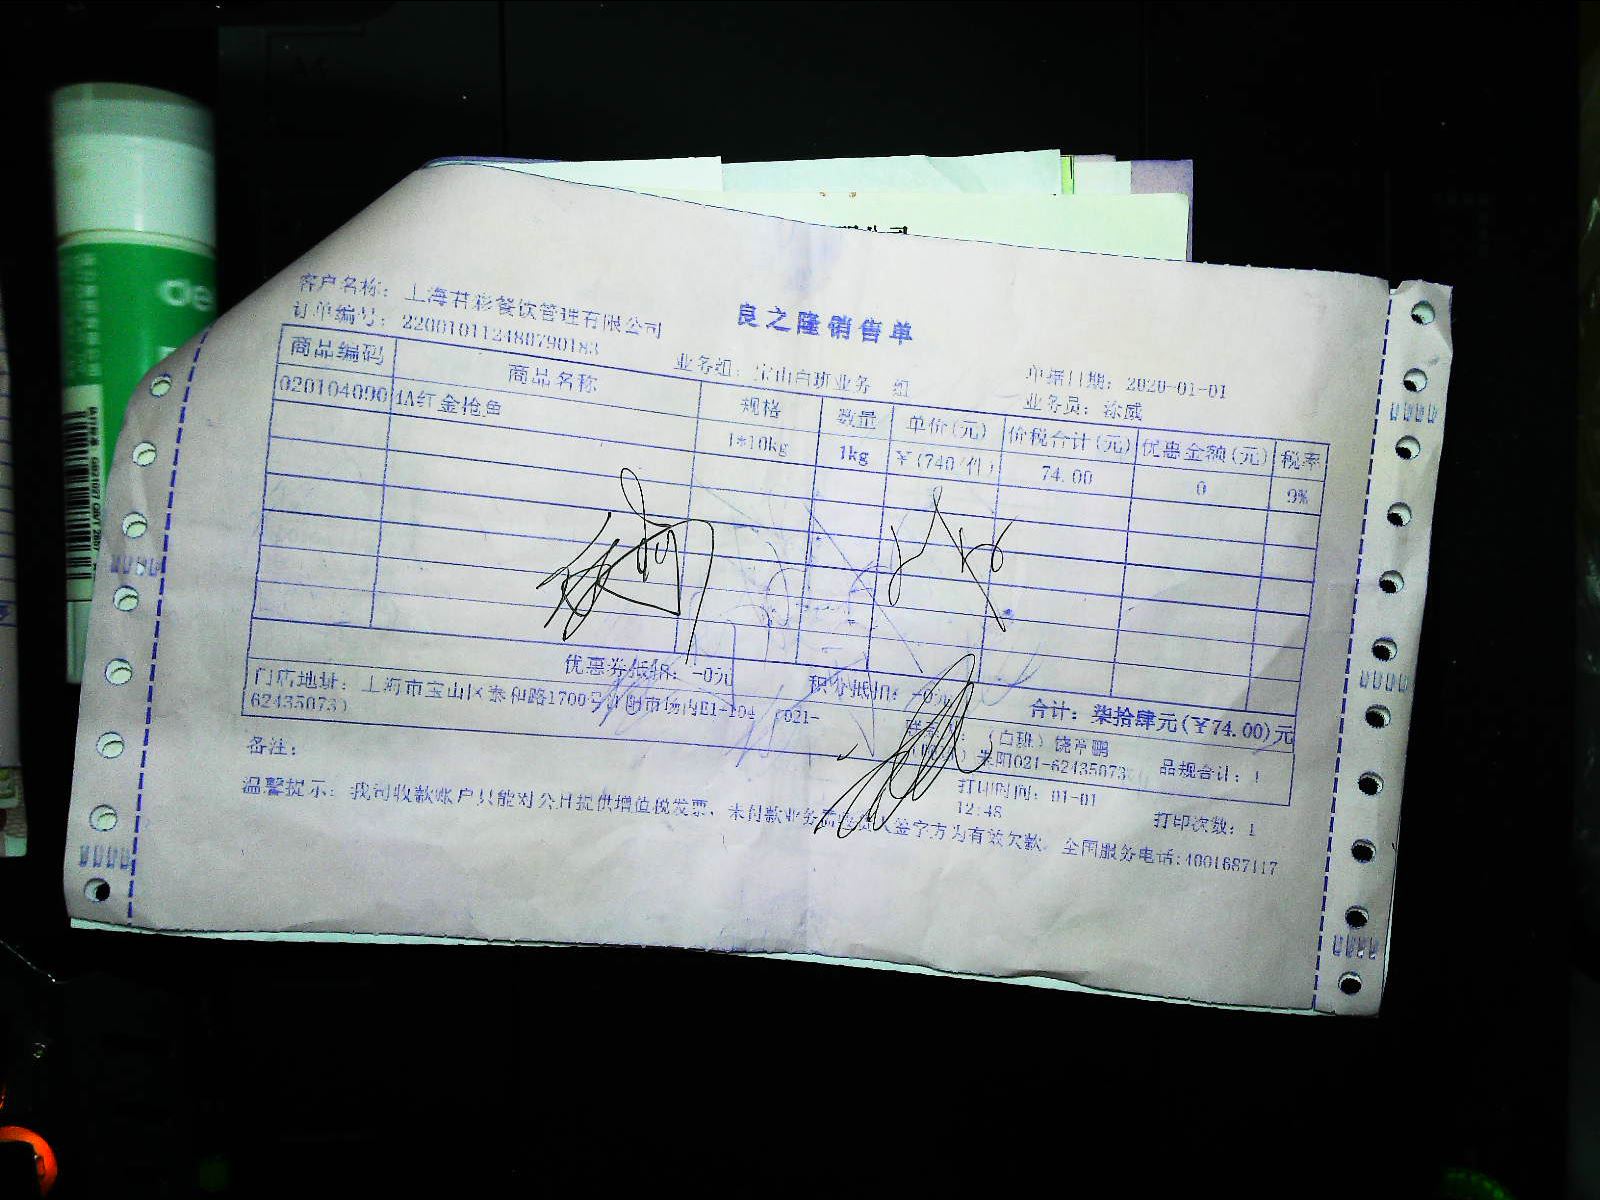 良之隆销售单
客户名称：上海君彩餐饮管理有限公司
订单编号：220010112480790183
业务组：宝山白班业务一组
单据日期：2020-01-01
业务员：徐威
商品编码 商品名称 规格 数量 单价(元) 价税合计(元) 优惠金额(元) 税率
020104090 4A红金抢鱼 1*10kg 1kg ￥(740/件) 74.00 0 9%
优惠券抵扣：-0元 积分抵扣：-0元 合计：柒拾肆元(￥74.00)元
门店地址：上海市宝山区泰和路1700号江阳市场内E1-104 （021-
62435073）
（白班）饶 鹏
朱阳021-62435073
品规合计：1
备注：
打印时间：01-01
12:48
打印次数：1
温馨提示：我司收款账户只能对公且提供增值税发票、未付款业务需 人签字方为有效欠款。全国服务电话:4001687117
de